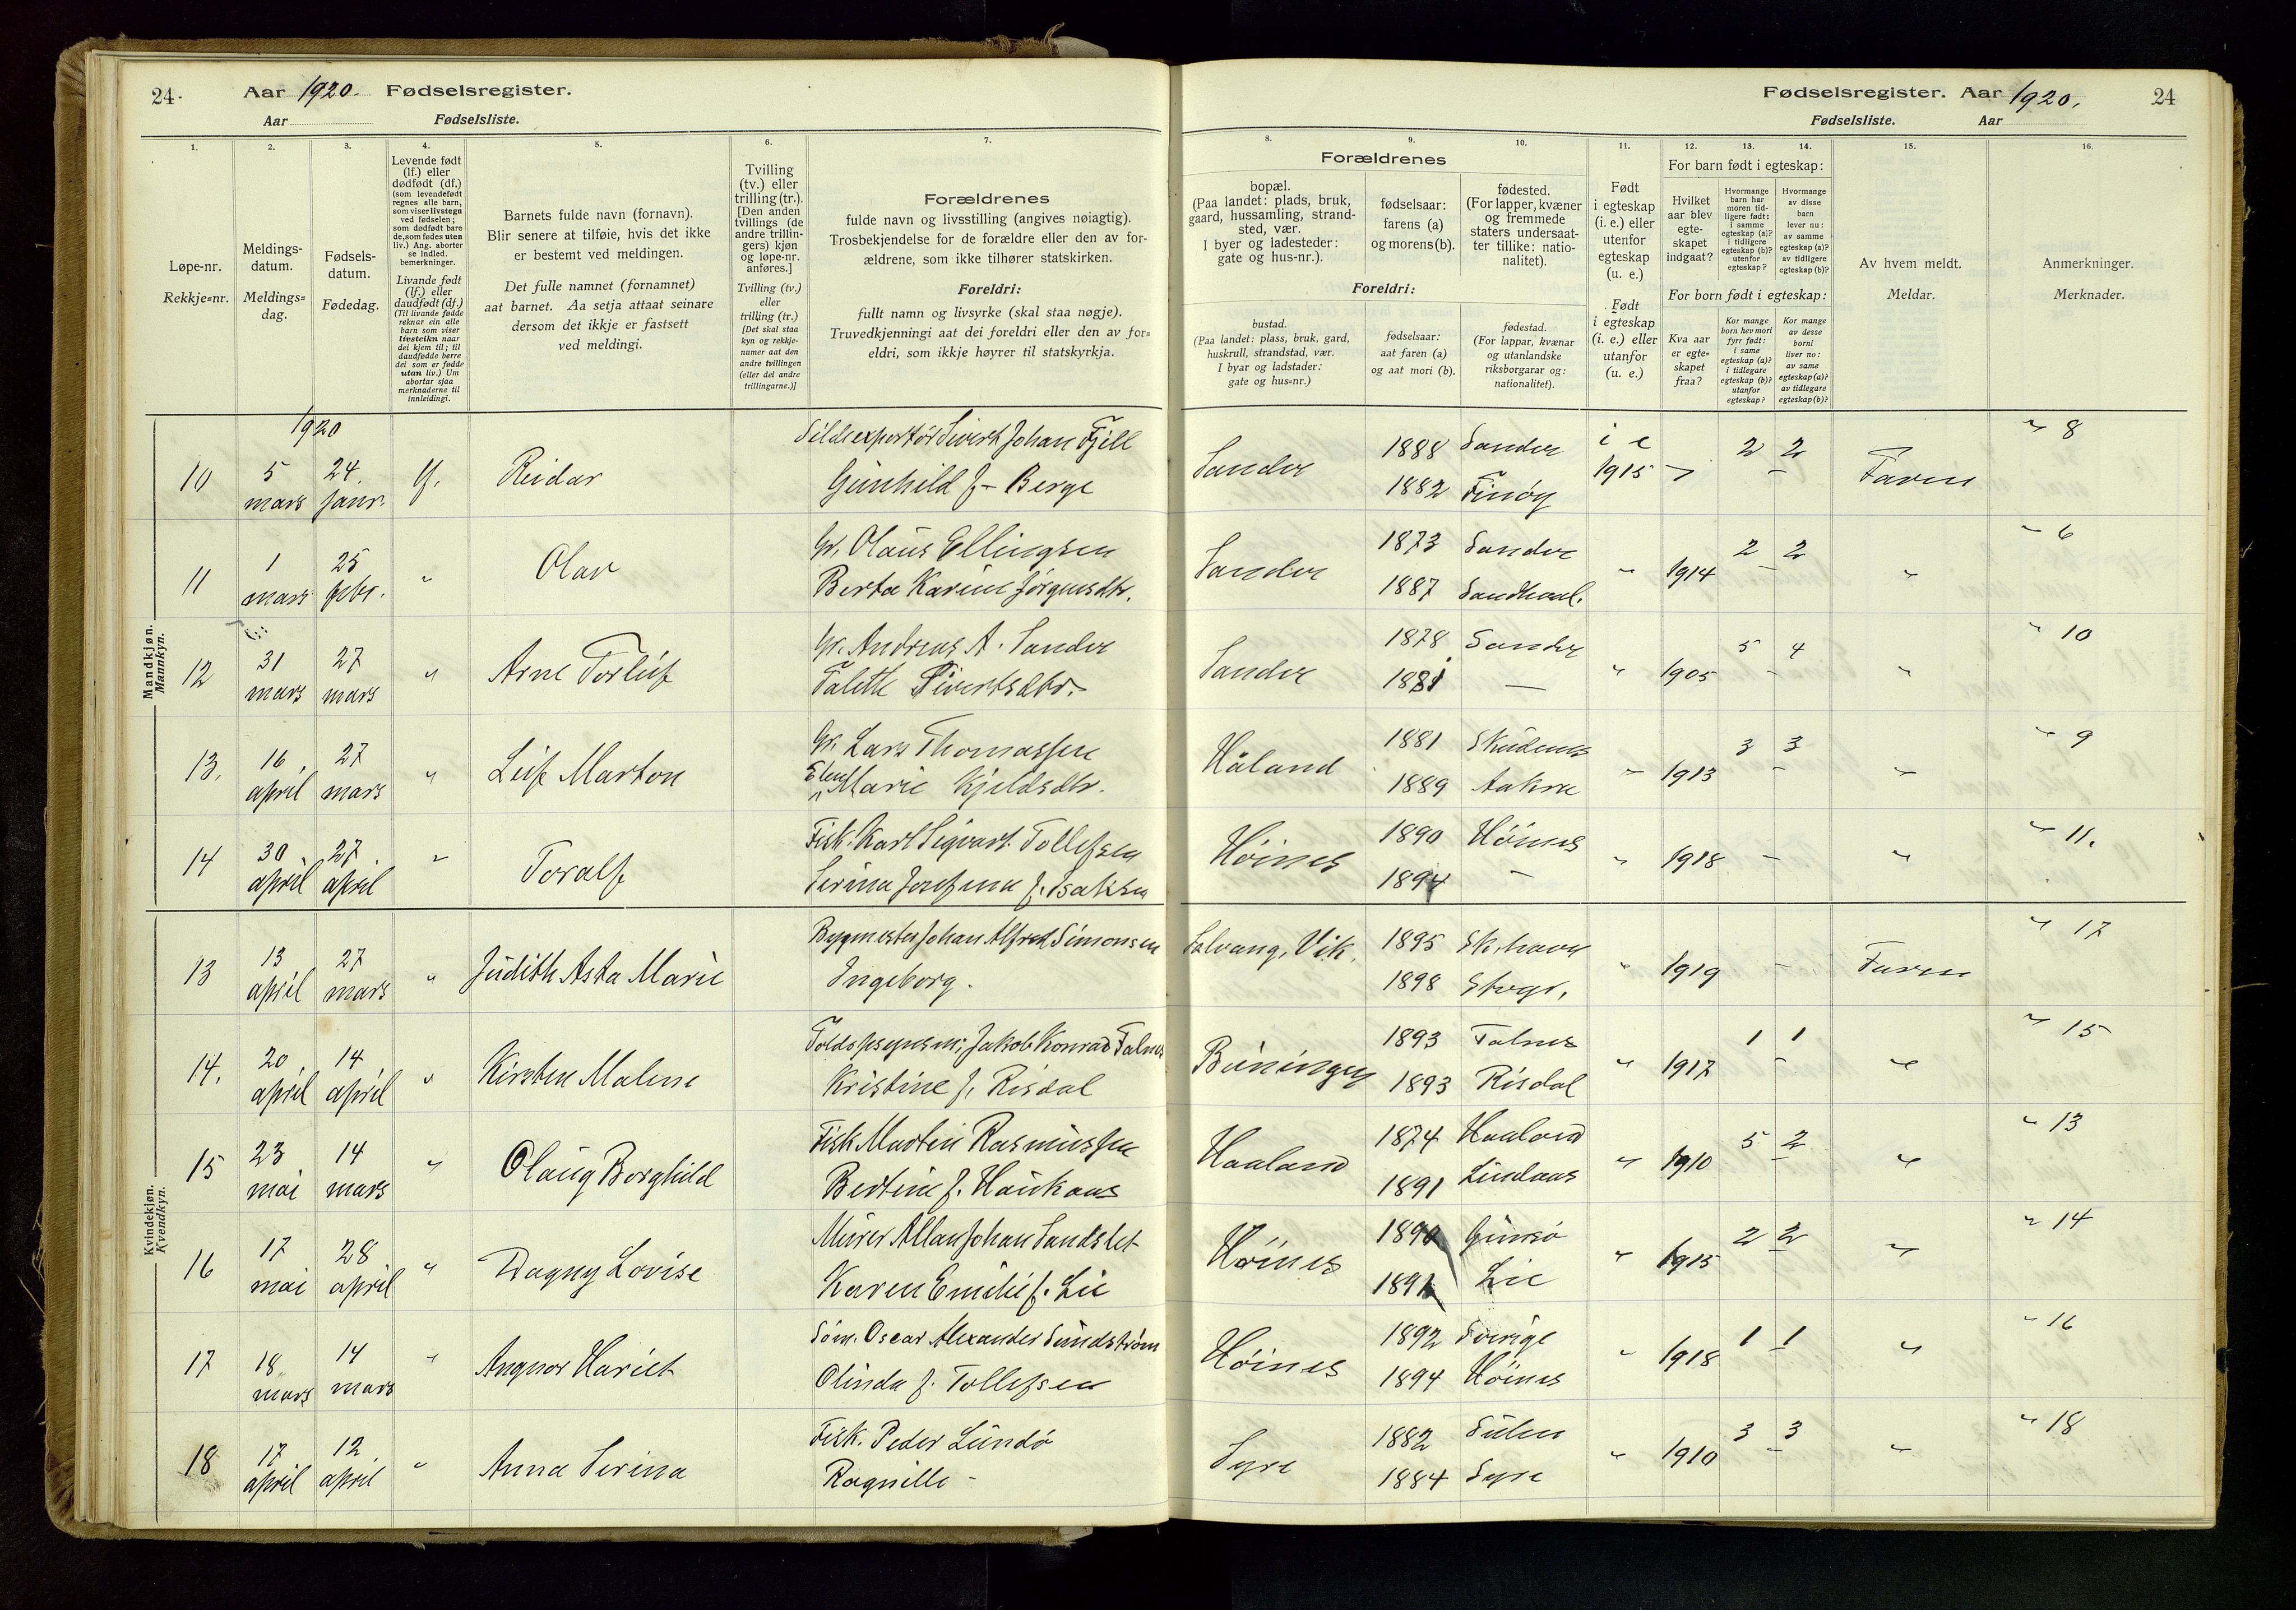 24. Aar 1920. Fødselsregister.
Aar Fødselsliste.
Fødselsregister. Aar 1920. 24
Fødselsliste. Aar
1. 2. 3. 4. 5. 6. 7.
Løpe-nr.
Rekkje=nr.
Meldings-
datum.
Meldings=
dag.
Fødsels-
datum.
Fødedag.
Levende født
(lf.) eller
dødfødt (df.)
(som levendefødt
regnes alle barn,
som viser livstegn
ved fødselen;
som dødfødt bare
de, som fødes uten
liv.) Ang. aborter
se indled.
bemerkninger.
Livande født
(lf.) eller
daudfødt (df.)
(Til livande fødde
reknar ein alle
barn som viser
livsteikn naar
dei kjem til; til
daudfødde berre
dei som er fødde
utan liv.) Um
abortar sjaa
merknaderne til
innleidingi.
Barnets fulde navn (fornavn).
Blir senere at tilføie, hvis det ikke
er bestemt ved meldingen.
Det fulle namnet (fornamnet)
aat barnet. Aa setja attaat seinare
dersom det ikkje er fastsett
ved meldingi.
Tvilling
(tv.) eller
trilling (tr.).
[Den anden
tvillings (de
andre trillin-
gers) kjøn
og løpe-nr.
anføres.]
Tvilling (tv.)
eller
trilling (tr.)
[Det skal staa
kyn og rekkje-
numer aat den
andre tvillingen
(eller dei andre
trillingarne.)]
Forældrenes
fulde navn og livsstilling (angives nøiagtig).
Trosbekjendelse for de forældre eller den av for-
ældrene, som ikke tilhører statskirken.
Foreldri:
fullt namn og livsyrke (skal staa nøgje).
Truvedkjenningi aat dei foreldri eller den av for=
eldri, som ikkje høyrer til statskyrkja.
8. 9. 10. 11. 12. 13. 14. 15. 16.
Forældrenes
bopæl.
(Paa landet: plads, bruk,
gaard, hussamling, strand-
sted, vær.
I byer og ladesteder:
gate og hus-nr.).
fødselsaar:
farens (a)
og morens (b).
fødested.
(For lapper, kvæner
og fremmede
staters undersaat-
ter tillike: natio-
nalitet).
Foreldri:
bustad.
(Paa landet: plass, bruk, gard,
huskrull, strandstad, vær.
I byar og ladstader:
gate og hus=nr.)
fødselsaar:
aat faren (a)
og aat mori (b).
fødestad.
(For lappar, kvænar
og utanlandske
riksborgarar og:
nationalitet).
Født
i egteskap
(i. e.) eller
utenfor
egteskap
(u. e.)
Født
i egteskap
(i. e.) eller
utanfor
(u. e.)
For barn født i egteskap:
Hvilket
aar blev
egte-
skapet
indgaat?
Hvormange
barn har
moren tid-
ligere født:
i samme
egteskap (a)?
i tidligere
egteskap (b)?
utenfor
egteskap?
Hvormange
av disse
barn
lever nu:
av samme
egteskap (a)?
av tidligere
egteskap (b)?
For born født i egteskap:
Kva aar
er egte=
skapet
fraa?
Kor mange
born hev mori
fyrr født:
i same
egteskap (a)?
i tidlegare
egteskap (b)?
utanfor
egteskap?
Kor mange
av desse
borni
liver no:
av same
egteskap (a)?
av tidlegare
egteskap (b)?
Av hvem meldt.
Meldar.
Anmerkninger.
Merknader.
Mandkjøn.
Mannkyn.
1920
10 5 mars 24. janr. lf. Reidar Sildeexportør Sivert Johan Fjell Sander 1888 Sander i e 2 2 " 8
Gunhild f- Berge 1882 Finøy 1915 Faren
11 1 mars 25 febr. " Olav Gr. Olaus Ellingsen Sander 1873 Sander " 1914 2 - 2 " " 6
Berta Karine Jørgensdtr. 1887 Sandhaal.
12 31 mars 27 mars " Arne Torleif Gr. Andreas A. Sander Sander 1878 Sander " 1905 5 - 4 " " 10
Talette Sivertsdtr. 1881 —
13. 16. april 27 mars " Leif Marton Gr. Lars Thomassen Håland 1881 Skudenes " 1913 3 - 3 " " 9
Elen Marie Kjeldsdtr. 1889 Aakra
14 30 april 27 april " Toralf Fisk. Karl Sigvart Tollefsen Høines 1890 Høines " 1918 - " " 11.
Serina Josefine f. Isaksen 1894 —
Kvindekjøn.
Kvendkyn.
13 13 april 27 mars " Judith Asta Marie Bygmester Johan Alfred Simonsen Solvang, Vik. 1895 Sk.havn " 1919 - Faren " 17
Ingeborg. 1898 Stvgr.
14. 20 april 14 april " Kirsten Malene Jakob Konrad Falnes 1893 Falnes " 1917 1 - 1 " " 15
Kristine f. Risdal 1893 Risdal
15 23 mai 14 mars " Olaug Borghild Fisk Martin Rasmussen Haaland 1874 Haaland " 1910 5 - 2 " " 13
Bertine f. Haukaas 1891 Lindaas
16 17 mai 28 april " Dagny Lovise Murer Allan Johan Sandslet Høines 1890 " 1915 2 - 2 " " 14
Karen Emilie f. Lie 1891 Lie
17 18 mars 14 mars " Angnor Hariet Søm. Oscar Alexander Sundstrøm Høines 1892 Sverige " 1918 1 - 1 " " 16
Olinda f. Tollefsen 1894 Høines
18 17 april 12 april " Anna Serina Fisk. Peder Lundø Syre 1882 Sulen " 1910 3 - 3 " " 18
Ragnille - 1884 Syre